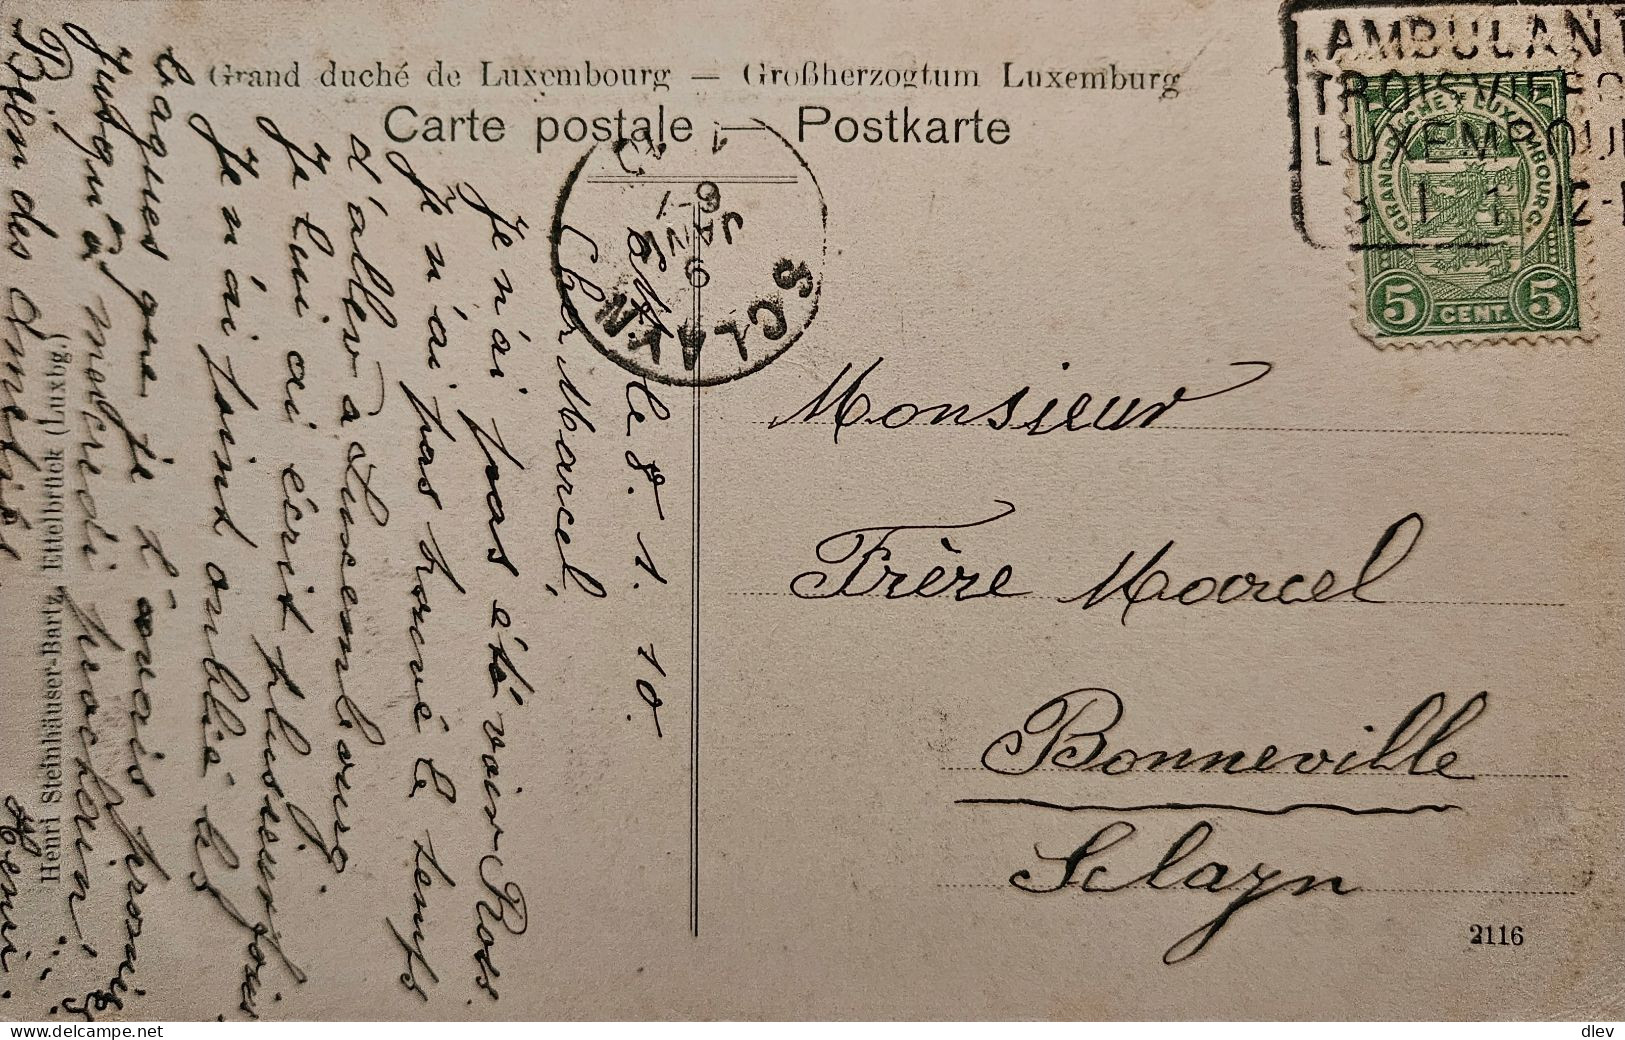 Grand duché de Luxembourg — Großherzogtum Luxemburg
Carte postale — Postkarte
AMBULANT
TROISVIERG
LUXEMBOU
GRAND-DUCHÉ DE LUXEMBOURG.
5 CENT. 5
SCLAYN
le 8. 1. 10.
Cher Marcel,
Je n'ai pas été voir Ross.
Je n'ai pas trouvé le temps
d'aller à Luxembourg.
Je lui ai écrit plusieurs fois
Je n'ai point oublié les
bagues que je t'avais promis
jusqu'à mercredi prochain!
Bien des amitiés
Henri.
Monsieur
Frère Marcel
Bonneville
Sclayn
2116
Henri Steinhäuser-Bartz, Ettelbrück (Luxbg.)
dlev